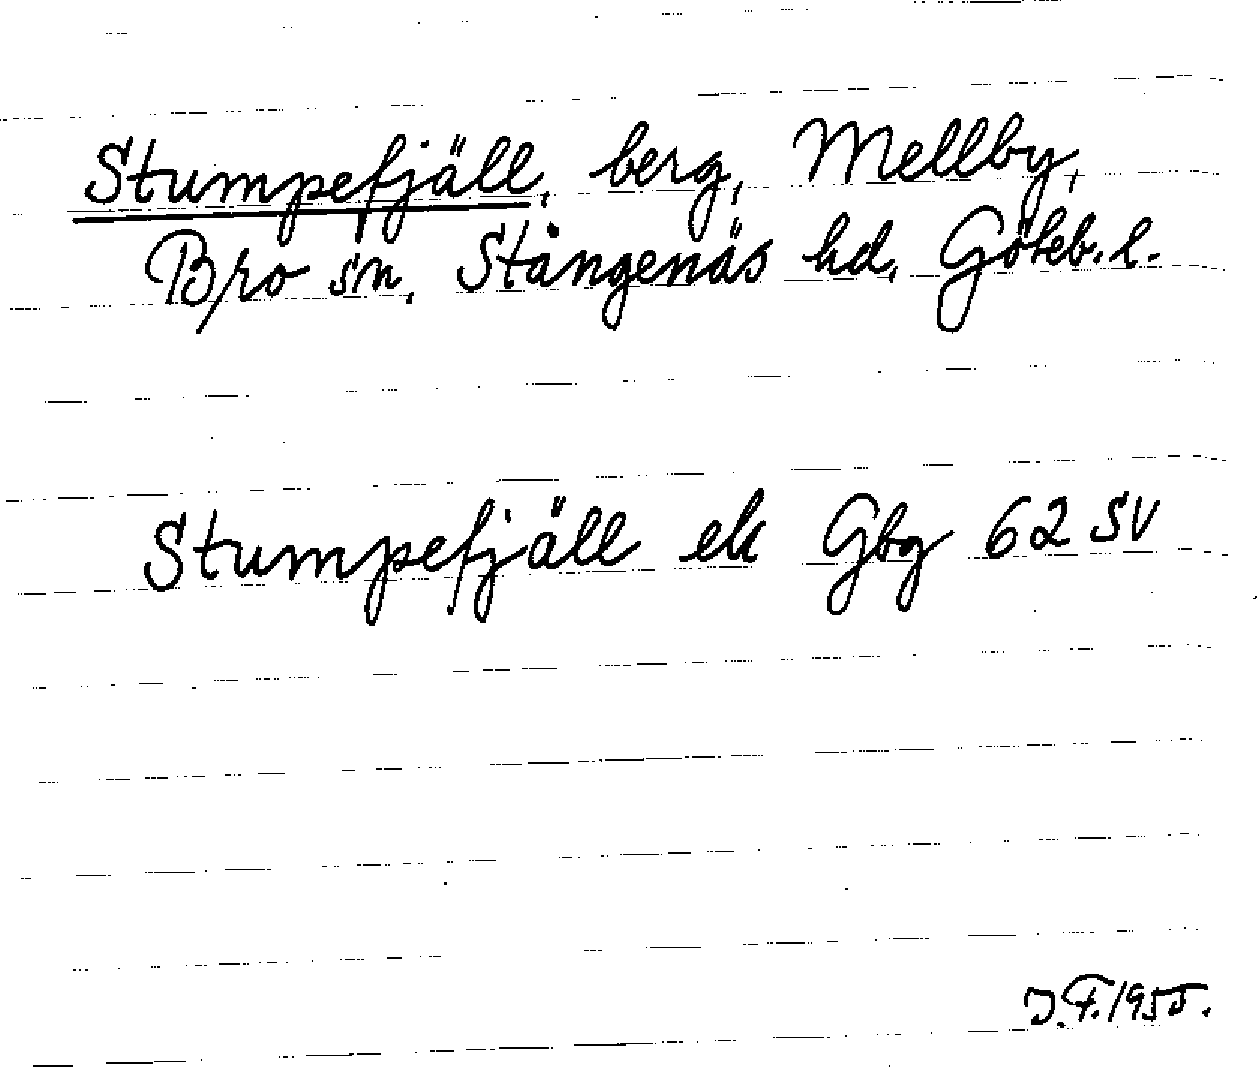 Stumpefjäll, berg, Mellby,
Bro sn, Stångenäs hd, Göteb. l.
Stumpefjäll ek Gbg 62 SV
J.F. 1955.